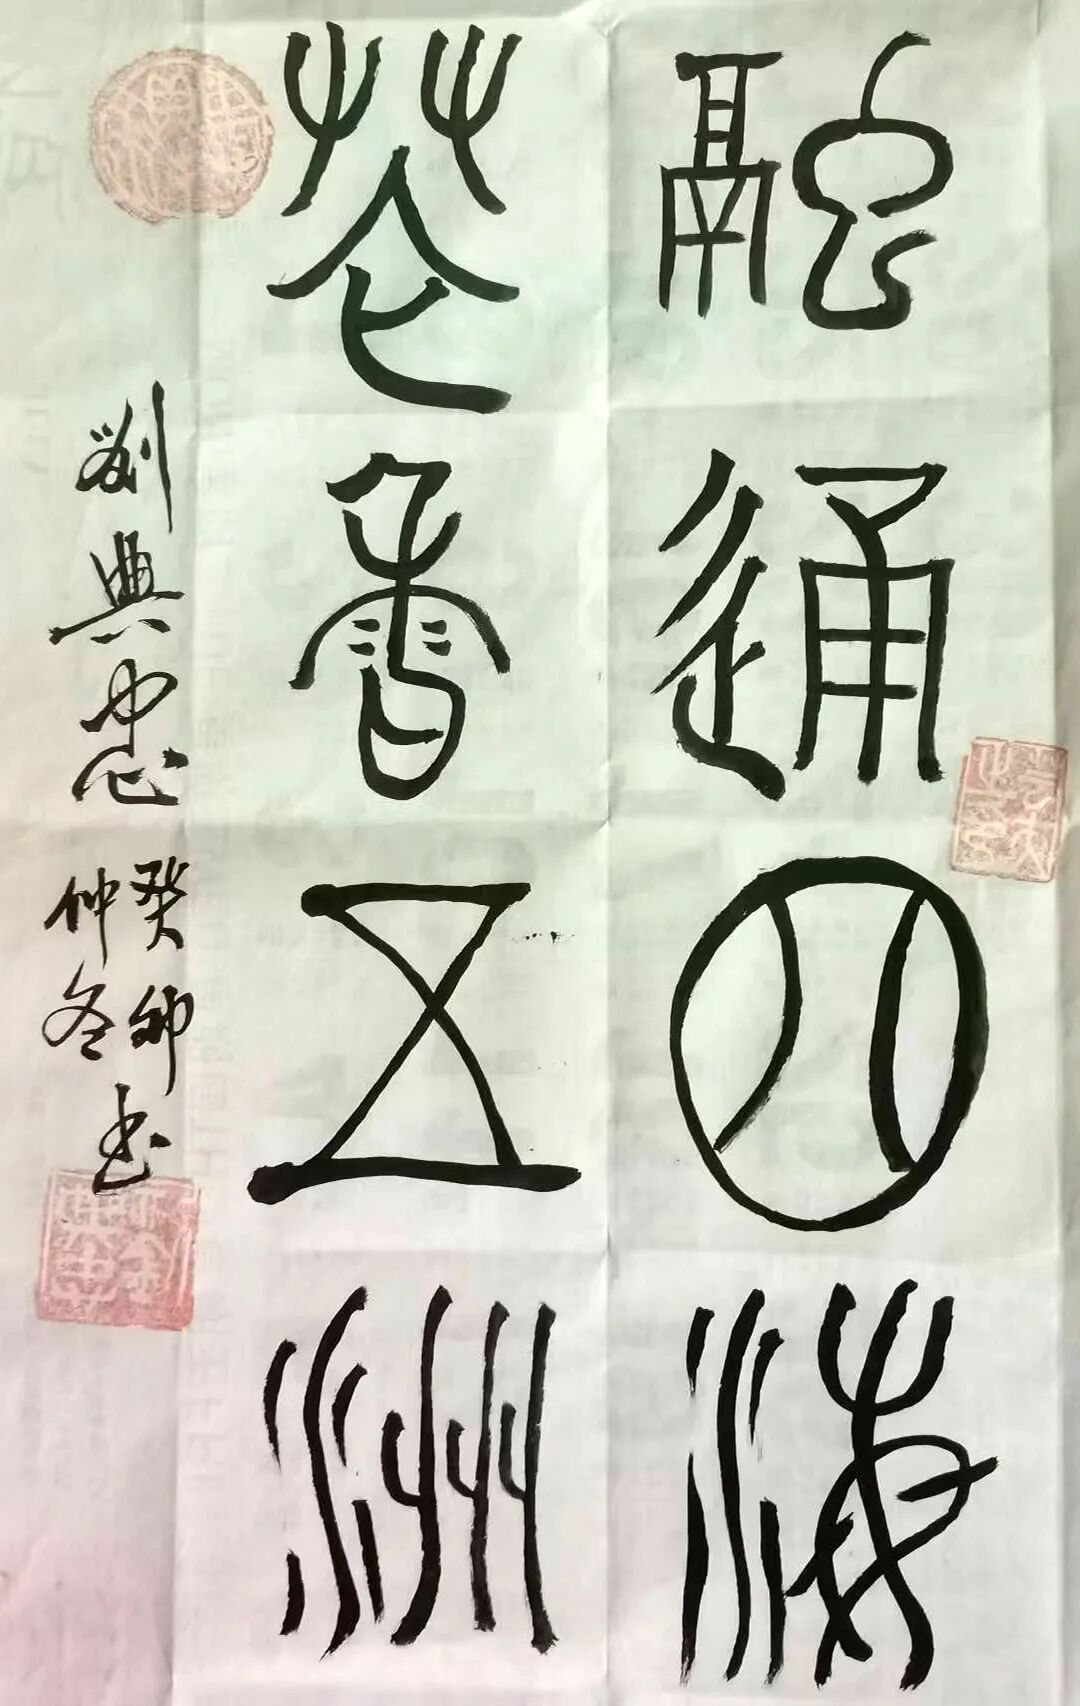 融通四海
花香五洲
刘典忠
癸卯
仲冬
书